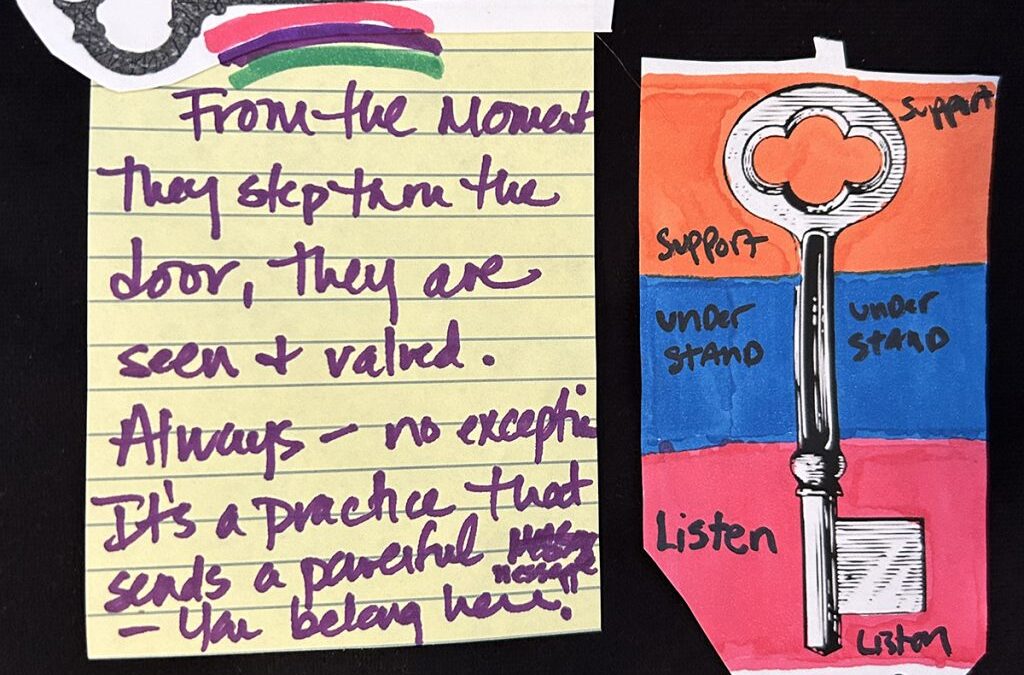 From the Moment
they step thru the
door, they are
seen + valued.
Always – no excepti
It's a practice that
sends a powerful
message
– You belong here!"
Support
Support
UNDER
STAND
UNDER
STAND
Listen
Listen